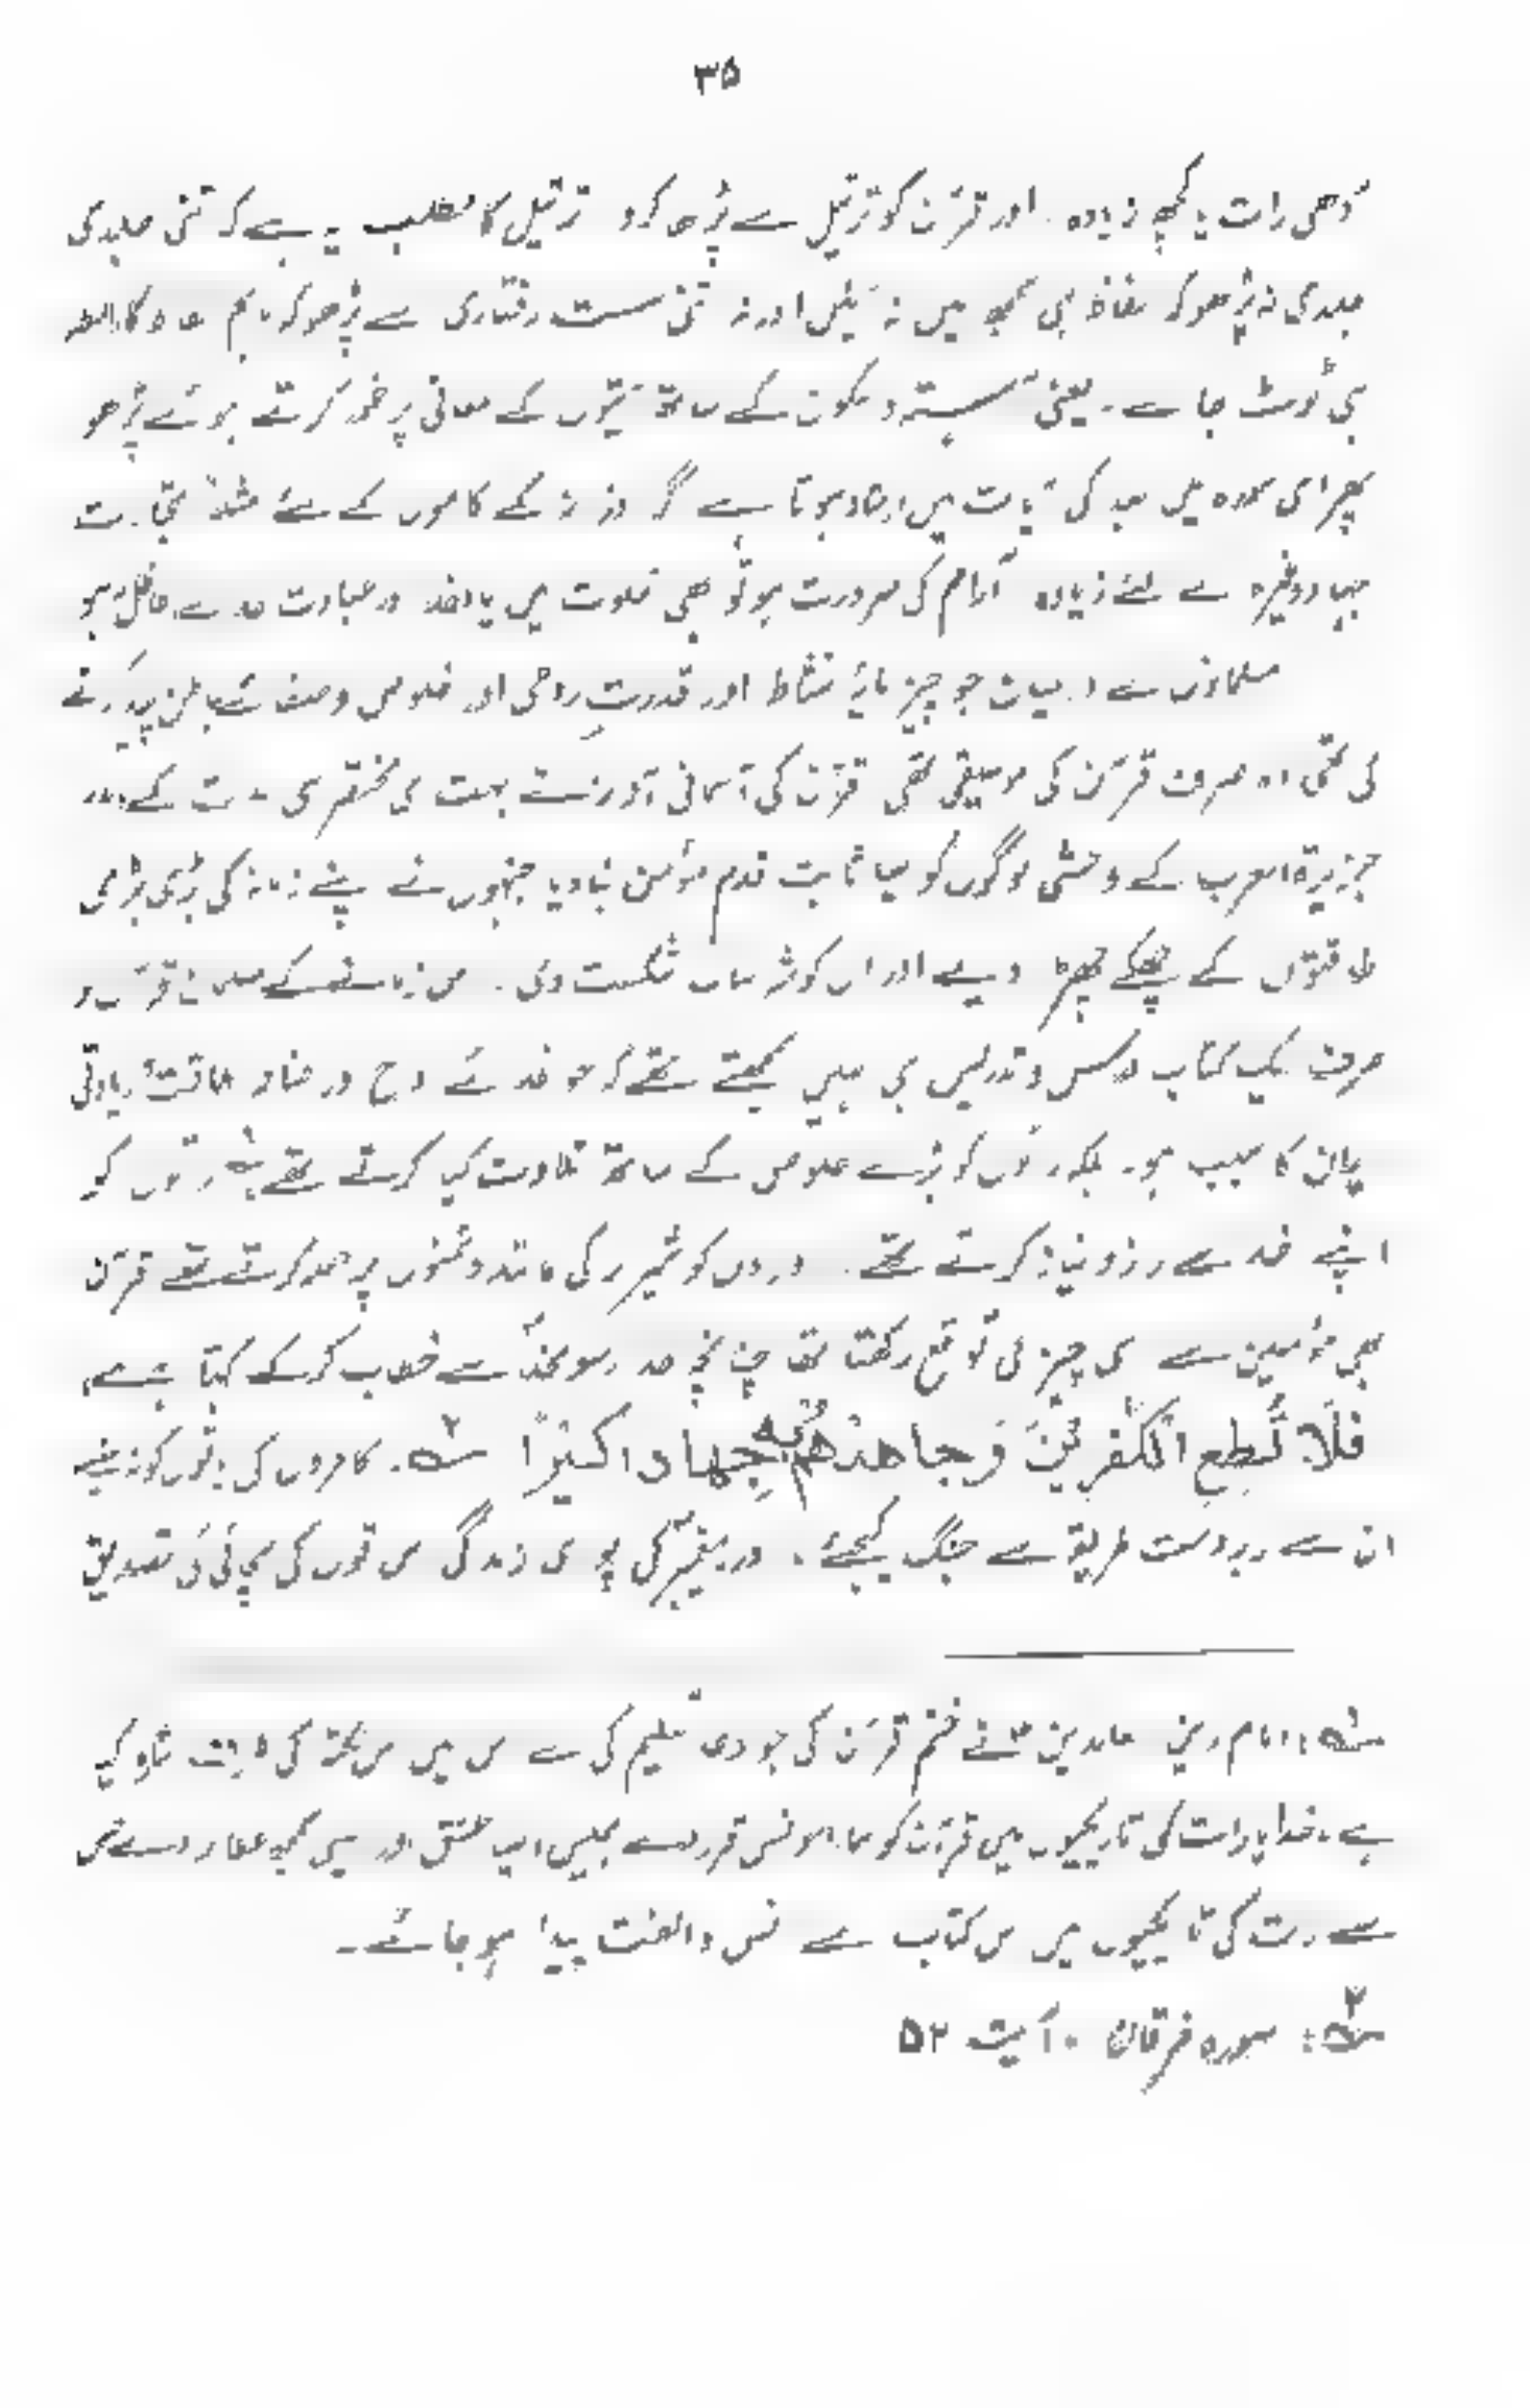 ۳۵
آدھی رات یا کچھ زیادہ۔ اور قرآن کو ترتیل سے پڑھا کرو ترتیل کا مطلب یہ ہے کہ اتنی جلدی
جلدی نہ پڑھو کہ الفاظ ہی سمجھ میں نہ آئیں اور نہ اتنی سست رفتاری سے پڑھو کہ باہم کا رابطہ
ہی ٹوٹ جائے۔ یعنی آہستہ و سکون کے ساتھ آیتوں کے معانی پر غور کرتے ہوئے پڑھو
پھر اسی سورہ میں بعد کی آیات میں ارشاد ہوتا ہے اگر روزانہ کے کاموں کے لئے مثلاً تجارت
جہاد وغیرہ کے لئے زیادہ آرام کی ضرورت ہو تو بھی خلوت میں یاد خدا اور عبادت خدا سے غافل نہ ہو
مسلمانوں کے درمیان جو چیز مایۂ نشاط اور قدرتِ روحی اور خلوص و صفائے باطن پیدا کرنے
کی تھی وہ صرف قرآن کی موسیقی تھی قرآن کی آسمانی آواز نے بہت ہی مختصر سی مدت کے اندر
جزیرۃ العرب کے وحشی لوگوں کو ایسا ثابت قدم مؤمن بنا دیا جنہوں نے اپنے زمانہ کی بڑی بڑی
طاقتوں کے چھکے چھڑا دیئے اور ان کو شکست دی۔ اس زمانے کے مسلمان قرآن کو
صرف ایک کتاب درس و تدریس ہی نہیں سمجھتے تھے کہ جو غذائے روح اور طاقت
کا سبب ہو۔ بلکہ قرآن کو بڑے خلوص کے ساتھ تلاوت کیا کرتے تھے راتوں کو
اپنے خدا سے راز و نیاز کرتے تھے۔ اور دن کو شیر کی مانند دشمنوں پر حملہ کرتے تھے قرآن
بھی مؤمنین سے اسی چیز کی توقع رکھتا تھا چنانچہ خدا رسول سے خطاب کر کے کہتا ہے
فَلَا تُطِعِ الْكٰفِرِيْنَ وَجَاهِدْهُمْ بِهٖ جِهَادًا كَبِيْرًا ۲؎۔ کافروں کی باتوں کو نہ مانیے
ان سے زبردست طریقہ سے جنگ کیجئے۔ اور پیغمبرؐ کی پوری زندگی اس قول کی سچائی کی تصدیق
۱؎: امام زین العابدینؑ نے ختم قرآن کی جو دعا تعلیم کی ہے اس میں اس نکتہ کی طرف اشارہ کیا
ہے۔ خدایا رات کی تاریکیوں میں قرآن کو ہمارا مونس قرار دے ہمیں ایسا عشق اور
سے رات کی تاریکیوں میں اس کتاب سے انس و الفت پیدا ہو جائے۔
۲؎: سورہ فرقان۔ آیت ۵۲